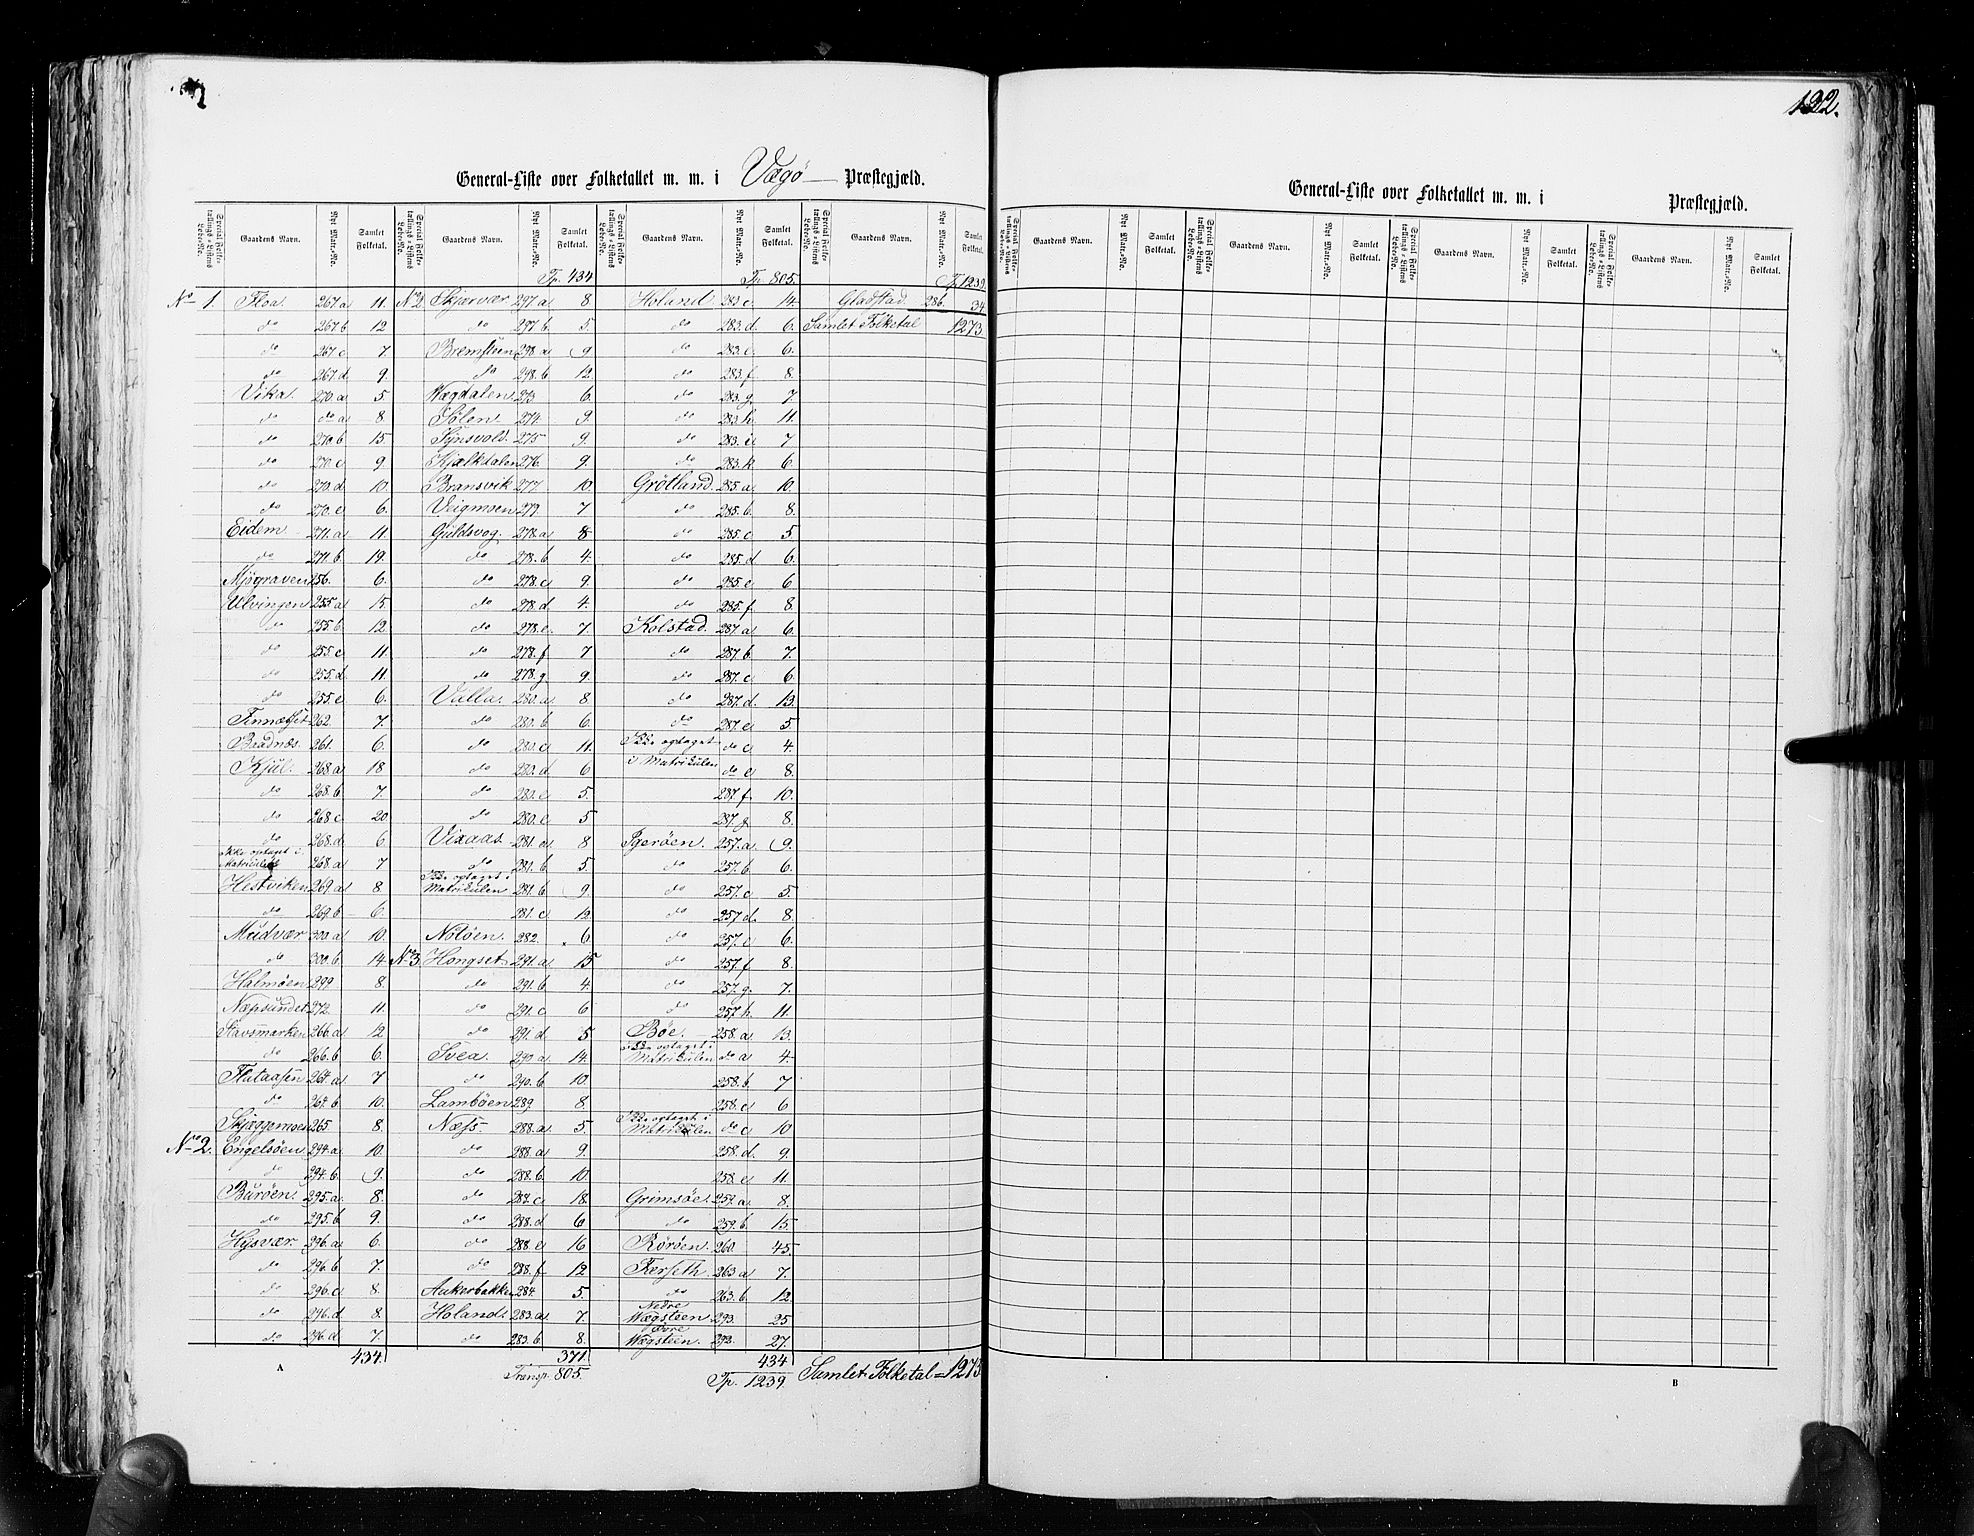 122.
General-Liste over Folketallet m. m. i Vægø Præstegjæld.
Special Folketællings-Listens Løbe-No. Gaardens Navn. Nyt Matr.-No. Samlet Folketal.
Special Folketællings-Listens Løbe-No. Gaardens Navn. Nyt Matr.-No. Samlet Folketal.
Special Folketællings-Listens Løbe-No. Gaardens Navn. Nyt Matr.-No. Samlet Folketal.
Special Folketællings-Listens Løbe-No. Gaardens Navn. Nyt Matr.-No. Samlet Folketal.
Tp. 434 Tp. 805. Tp. 1239
No 1. Floa 267 a 11. No 2 Skjærvær 297 a 8 Holand 283 c 14 Gladstad 286. 34
do 267 b 12 do 297 b. 5. do 283. d. 6. Samlet Folketal 1273
do 267. c 7. Bremsteen 298. a 9 do 283. e. 6.
do 267. d 9. do 298. b 12. do 283. f. 8.
Vika. 270. a 5 Wægdalen 273 6. do 283. g. 7
do do a 8. Sølen 274. 9. do 283. h. 11.
do 270. b 15. Synsvold. 275 9. do 283. i. 7
do 270. c 9 Kjælkdalen 276. 9. do 283. k. 6.
do 270. d. 10. Bransvik 277 10 Grøtland. 285. a. 10.
do 270. e 6. Veigmoen 279. 7 do 285. b. 8.
Eidem. 271. a 11. Guldsvog. 278. a 8 do 285. c 5
do 271. b 19. do 278. b 4. do 285. d. 6.
Mjøgraven 256. 6. do 278. c 9. do 285. e 6
Ulvingen 255 a 15. do 278. d 4. do 285. f 8.
do 255. b. 12. do 278. e. 7. Kolstad. 287. a 6.
do 255. c 11. do 278. f 7 do 287. b 7.
do 255. d. 11. do 278. g 9. do 287. c 6.
do 255. e 6. Valla. 280. a 8. do 287. d. 13.
262. 7. do 280. b 6. do 287. e 5
Baadnæs. 261. 6. do 280. c 11. Ikke optaget do e 4.
Kjul. 268. a 18 do 280. d 6 i Matrikulen do e 8.
do 268. b 7. do 280. e 5. 287. f. 10.
do 268 c 20. do 280. e 5 287. g 8.
do 268. d. 6. Vixaas 281. a 8 Ygerøen. 257. a. 9.
Ikke optaget i Matrikulen 268. a 7 do 281. b 5. do 257. b. 6.
Hestviken 269. a 8. Ikke optaget i Matrikulen 281. b 9 do 257. c 5.
do 269. b 6. 281. c 12. do 257 d. 8.
Mudvær 300. a 10. Noløen. 282. 6. do 257. e 6.
do 300. b. 14 No 3. Hongset. 291. a 15 do 257. f 8.
Halmøen 299 8. do 291. b 4. do 257. g. 7.
Næpsundet 272. 11. do 291. c 6 do 257. h. 11.
Stavsmarken 266. a 12 do 291. d 5 Bøe. 258. a 13.
do 266. b 6. Svea. 290 a 14. Ikke optaget i Matrikulen do a 4
Flataasen 264. a 7 do 290. b 10. 258. b. 7
do 264. b 10. Lambøen 289. 8. 258. c 6
Skjæggemoen 265 8. Næss. 288. a 5. Ikke optaget i Matrikulen do c 10
No 2. Engelsøen 294. a 10. do 288. a 9. 258. d. 9.
do 294. b. 9. do 288. b. 10. 258. e 11.
Burøen. 295. a. 8. do 287. c 18. Grimsøe. 259. a 8.
do 295. b 9. do 288. d 6 do 259. b. 15
Hysvær. 296. a 6. do 288 e 16 Rørøen. 260. 45.
do 296. b 7. do 288. f 12 Færseth. 263 a 7.
do 296. c 8. Aakerbakken 284. 5. do 263. b. 12
do 296. d 8. Holand. 283. a 7. Nedre Wægsteen 293. 25
do 296. d 7. do 283. b 8. Øvre Wægsteen. 292. 27.
434. 371. 434
A Transp. 805. Tp. 1239. Samlet Folketal = 1273
General-Liste over Folketallet m. m. i Præstegjæld.
Special Folketællings-Listens Løbe-No. Gaardens Navn. Nyt Matr.-No. Samlet Folketal.
Special Folketællings-Listens Løbe-No. Gaardens Navn. Nyt Matr.-No. Samlet Folketal.
Special Folketællings-Listens Løbe-No. Gaardens Navn. Nyt Matr.-No. Samlet Folketal.
Special Folketællings-Listens Løbe-No. Gaardens Navn. Nyt Matr.-No. Samlet Folketal.
B